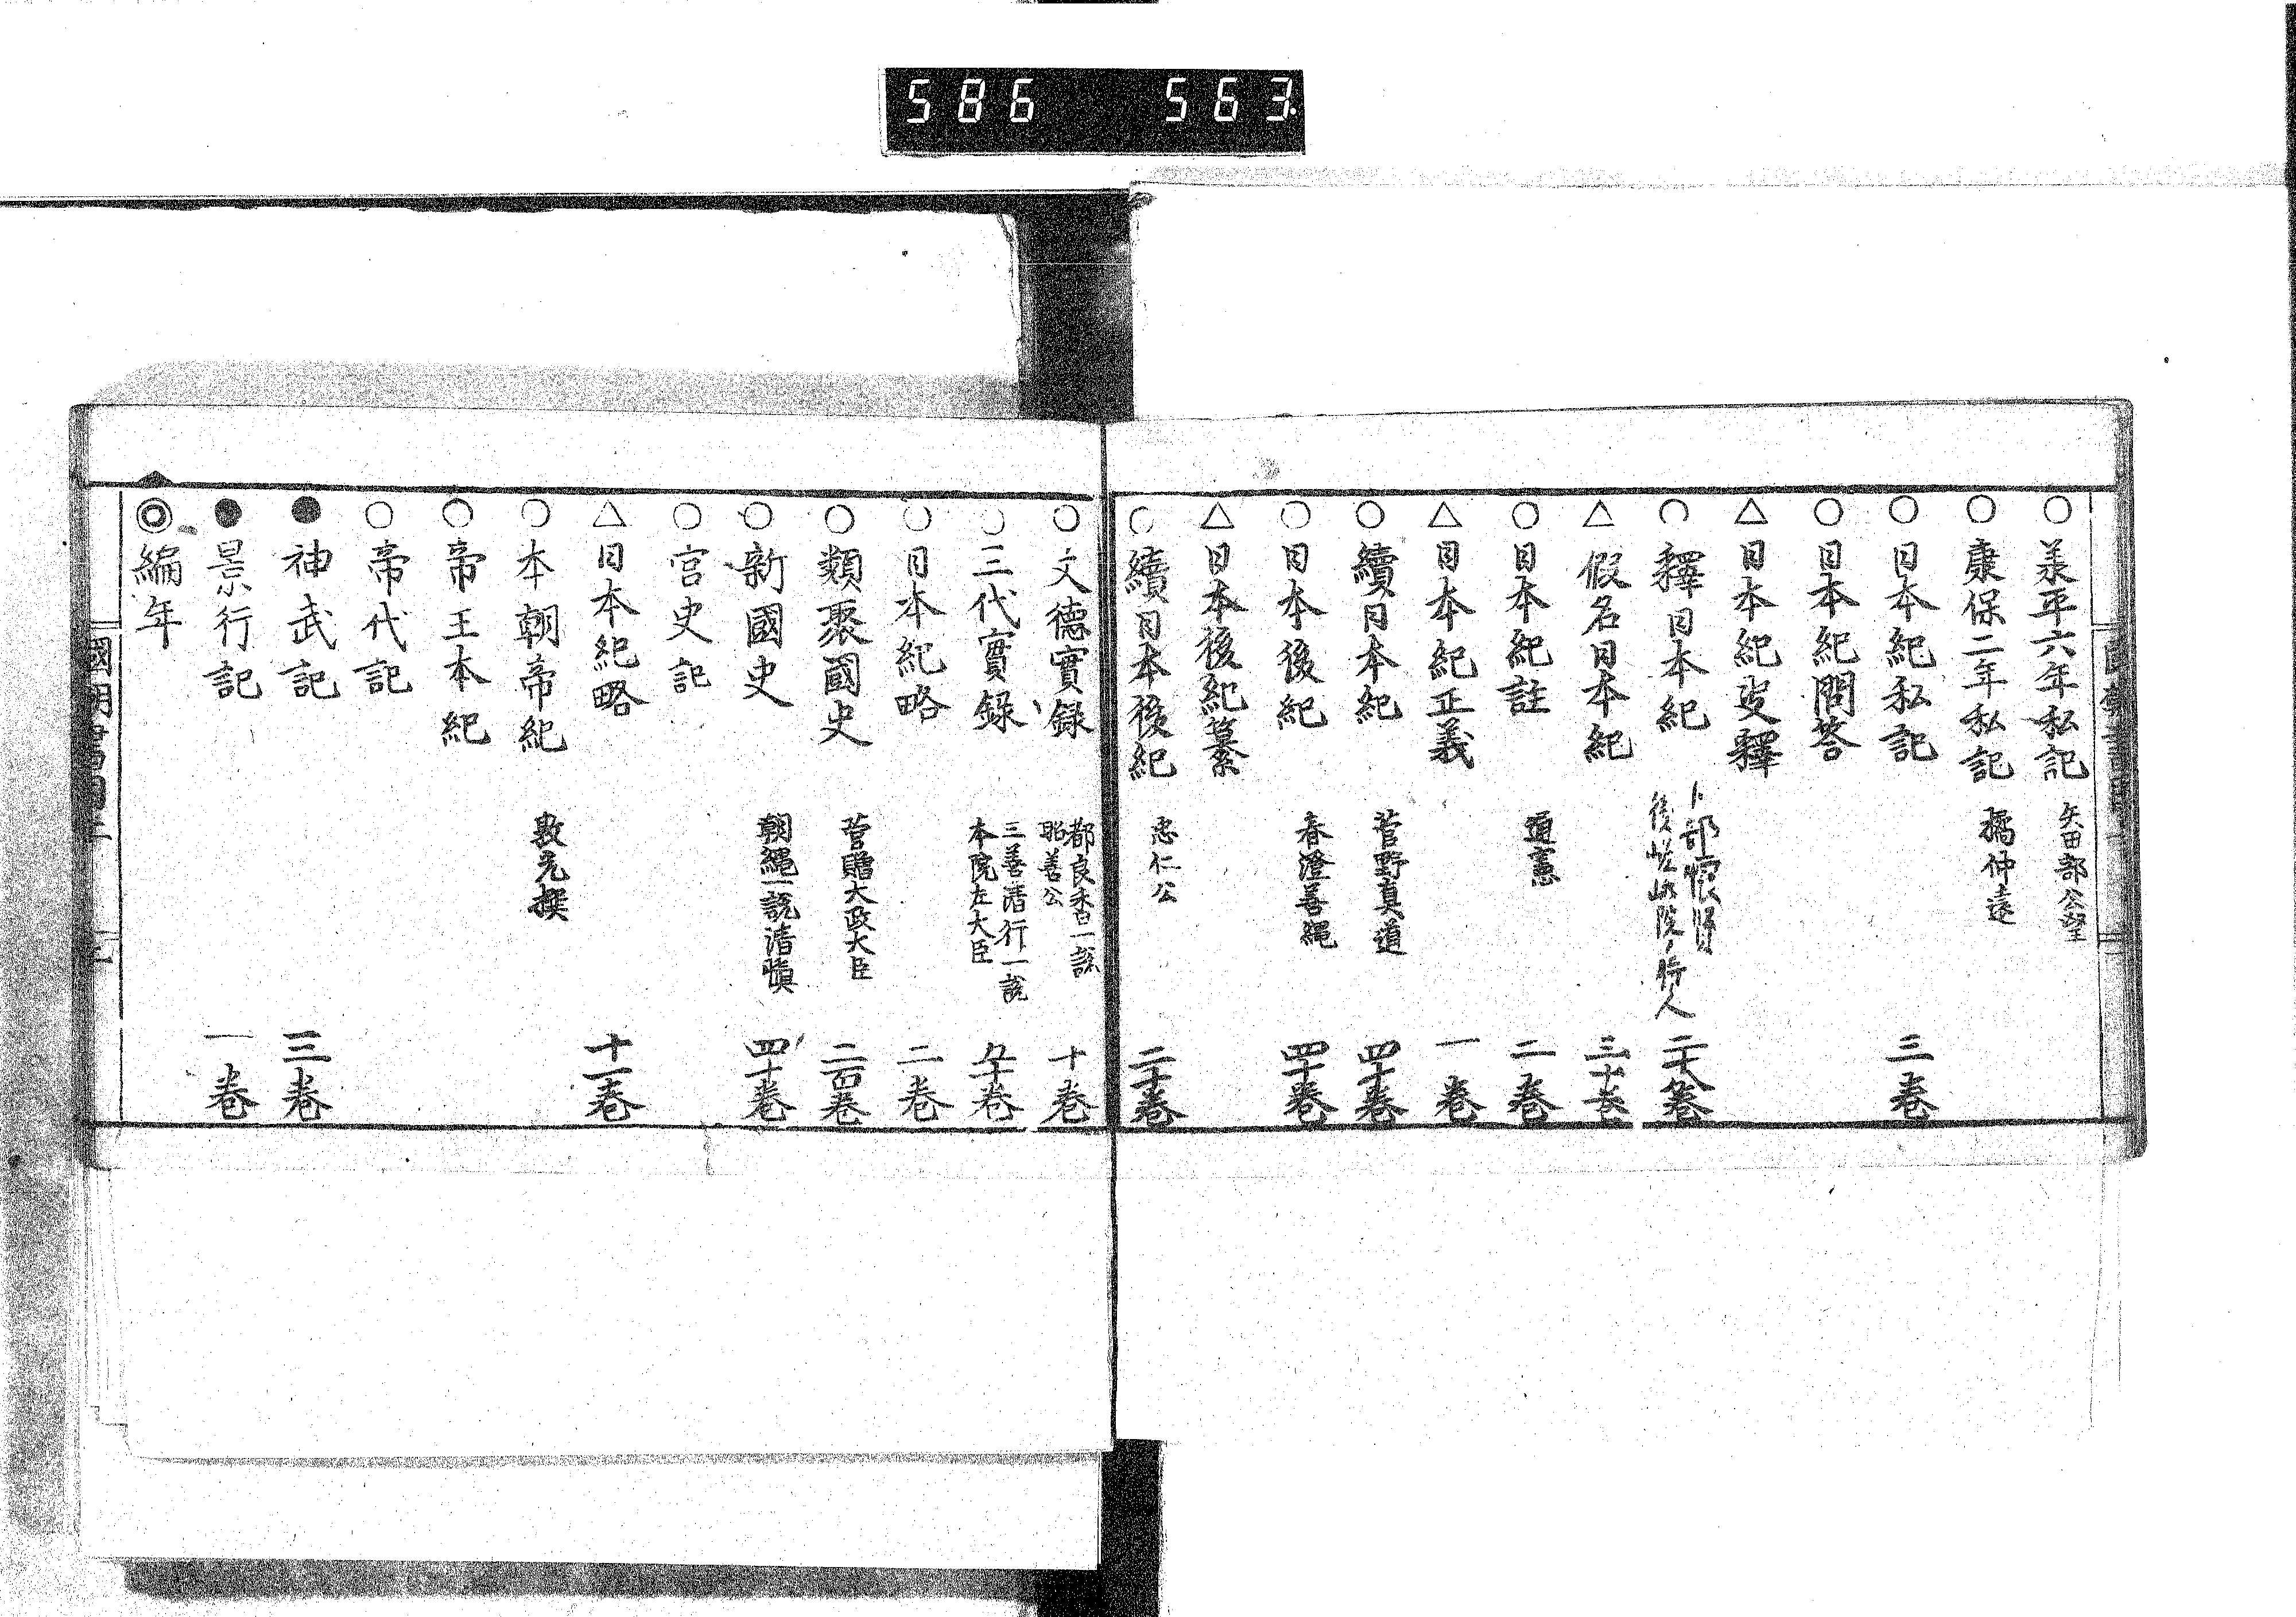 586 563
○承平六年私記 矢田部公望
○康保二年私記 橘仲遠
○日本紀私記 三卷
○日本紀問答
△日本紀叓釋
○釋日本紀 卜部懷賢 後嵯峨院ノ時ノ人 二十八卷
△假名日本紀 三十卷
○日本紀註 通憲 二卷
△日本紀正義 一卷
○續日本紀 菅野真道 四十卷
○日本後紀 春澄善繩 四十卷
△日本後紀纂
○續日本後紀 忠仁公 二十卷
○文德實録 都良香一説 昭善公 十卷
○三代實録 三善清行一説 本院左大臣 五十卷
○日本紀略 二卷
○類聚國史 菅贈大政大臣 二百卷
○新國史 朝繩一説清愼 四十卷
○官史記
△日本紀略 十一卷
○本朝帝紀 敦光撰
○帝王本紀
○帝代記
●神武記 三卷
●景行記 一卷
◎編年